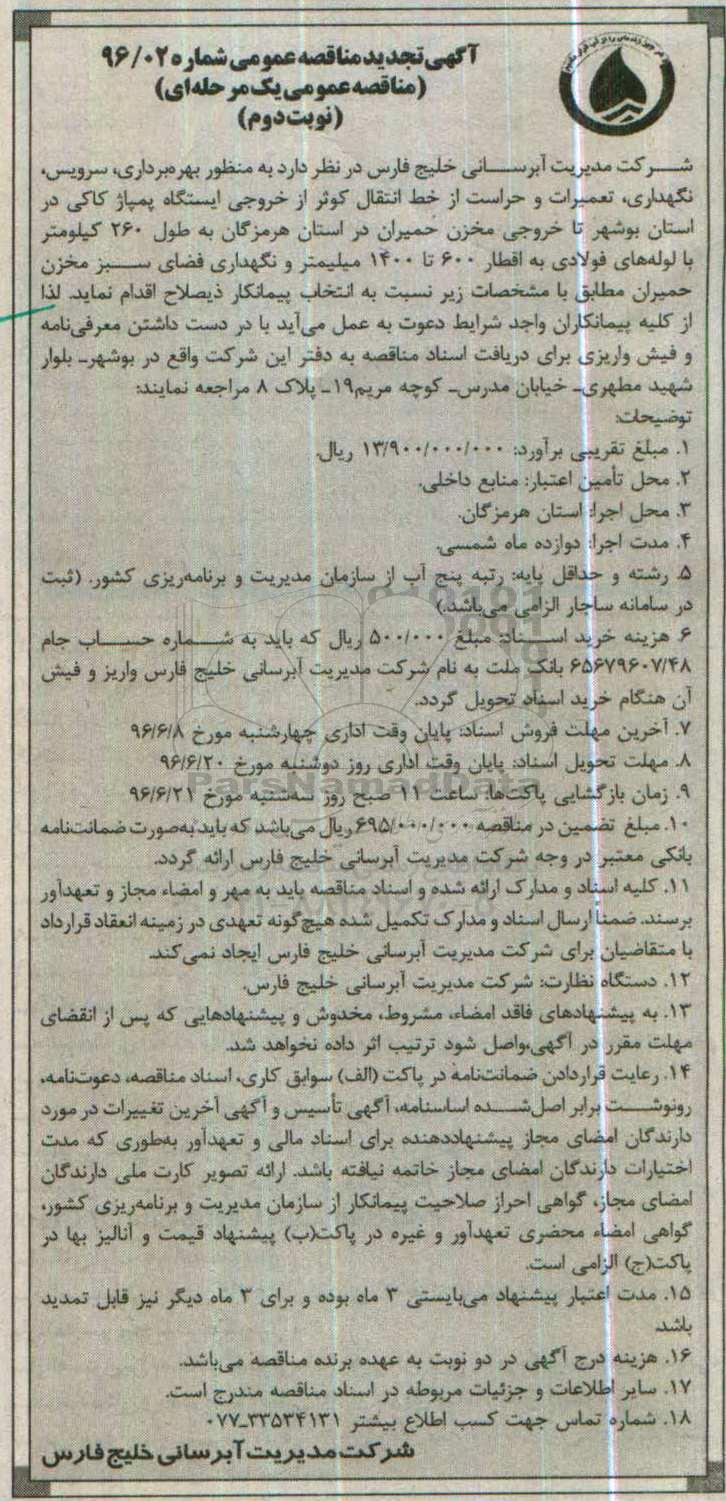 آگهی تجدید مناقصه عمومی شماره ۹۶/۰۲
(مناقصه عمومی یک مرحله‌ای)
(نوبت دوم)
شرکت مدیریت آبرسانی خلیج فارس در نظر دارد به منظور بهره‌برداری، سرویس،
نگهداری، تعمیرات و حراست از خط انتقال کوثر از خروجی ایستگاه پمپاژ کاکی در
استان بوشهر تا خروجی مخزن حمیران در استان هرمزگان به طول ۲۶۰ کیلومتر
با لوله‌های فولادی به اقطار ۶۰۰ تا ۱۴۰۰ میلیمتر و نگهداری فضای سبز مخزن
حمیران مطابق با مشخصات زیر نسبت به انتخاب پیمانکار ذیصلاح اقدام نماید. لذا
از کلیه پیمانکاران واجد شرایط دعوت به عمل می‌آید با در دست داشتن معرفی‌نامه
و فیش واریزی برای دریافت اسناد مناقصه به دفتر این شرکت واقع در بوشهرـ بلوار
شهید مطهری‌ـ خیابان مدرس‌ـ کوچه مریم۱۹ـ پلاک ۸ مراجعه نمایند:
توضیحات:
۱. مبلغ تقریبی برآورد: ۱۳/۹۰۰/۰۰۰/۰۰۰ ریال.
۲. محل تأمین اعتبار: منابع داخلی.
۳. محل اجرا: استان هرمزگان.
۴. مدت اجرا: دوازده ماه شمسی.
۵. رشته و حداقل پایه: رتبه پنج آب از سازمان مدیریت و برنامه‌ریزی کشور. (ثبت
در سامانه ساجار الزامی می‌باشد.)
۶. هزینه خرید اسناد: مبلغ ۵۰۰/۰۰۰ ریال که باید به شماره حساب جام
۶۵۶۷۹۶۰۷/۴۸ بانک ملت به نام شرکت مدیریت آبرسانی خلیج فارس واریز و فیش
آن هنگام خرید اسناد تحویل گردد.
۷. آخرین مهلت فروش اسناد: پایان وقت اداری چهارشنبه مورخ ۹۶/۶/۸
۸. مهلت تحویل اسناد: پایان وقت اداری روز دوشنبه مورخ ۹۶/۶/۲۰
ParsNamadData
۹. زمان بازگشایی پاکت‌ها: ساعت ۱۱ صبح روز سه‌شنبه مورخ ۹۶/۶/۲۱
۱۰. مبلغ تضمین در مناقصه ۶۹۵/۰۰۰/۰۰۰ ریال می‌باشد که باید به‌صورت ضمانت‌نامه
بانکی معتبر در وجه شرکت مدیریت آبرسانی خلیج فارس ارائه گردد.
۱۱. کلیه اسناد و مدارک ارائه شده و اسناد مناقصه باید به مهر و امضاء مجاز و تعهدآور
برسند. ضمناً ارسال اسناد و مدارک تکمیل شده هیچ‌گونه تعهدی در زمینه انعقاد قرارداد
با متقاضیان برای شرکت مدیریت آبرسانی خلیج فارس ایجاد نمی‌کند.
۱۲. دستگاه نظارت: شرکت مدیریت آبرسانی خلیج فارس.
۱۳. به پیشنهادهای فاقد امضاء، مشروط، مخدوش و پیشنهادهایی که پس از انقضای
مهلت مقرر در آگهی،واصل شود ترتیب اثر داده نخواهد شد.
۱۴. رعایت قراردادن ضمانت‌نامه در پاکت (الف) سوابق کاری، اسناد مناقصه، دعوت‌نامه،
رونوشت برابر اصل‌شده اساسنامه، آگهی تأسیس و آگهی آخرین تغییرات در مورد
دارندگان امضای مجاز پیشنهاددهنده برای اسناد مالی و تعهدآور به‌طوری که مدت
اختیارات دارندگان امضای مجاز خاتمه نیافته باشد. ارائه تصویر کارت ملی دارندگان
امضای مجاز، گواهی احراز صلاحیت پیمانکار از سازمان مدیریت و برنامه‌ریزی کشور،
گواهی امضاء محضری تعهدآور و غیره در پاکت(ب) پیشنهاد قیمت و آنالیز بها در
پاکت(ج) الزامی است.
۱۵. مدت اعتبار پیشنهاد می‌بایستی ۳ ماه بوده و برای ۳ ماه دیگر نیز قابل تمدید
باشد.
۱۶. هزینه درج آگهی در دو نوبت به عهده برنده مناقصه می‌باشد.
۱۷. سایر اطلاعات و جزئیات مربوطه در اسناد مناقصه مندرج است.
۱۸. شماره تماس جهت کسب اطلاع بیشتر ۳۳۵۳۴۱۳۱ـ۰۷۷
شرکت مدیریت آبرسانی خلیج فارس